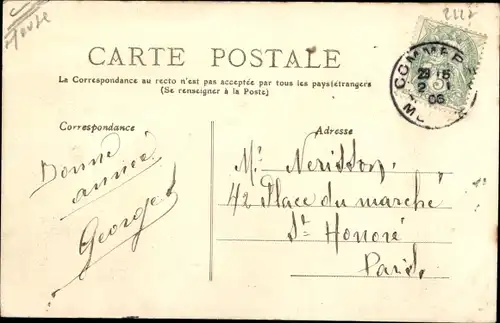 Meuse
2117
CARTE POSTALE
La Correspondance au recto n'est pas acceptée par tous les pays étrangers
(Se renseigner à la Poste)
COMMERCY
23 15
2 1
06
Correspondance
Adresse
Bonne
année
George
Mr. Nerisson,
42 Place du marché
St Honoré
Paris.